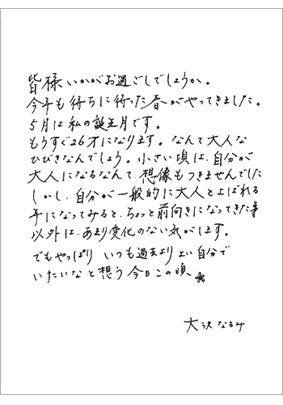 皆様いかがお過ごしでしょうか。
今年も待ちに待った春がやってきました。
5月は私の誕生月です。
もうすぐ26才になります。なんて大人な
ひびきなんでしょう。小さい頃は、自分が
大人になるなんて、想像もつきませんでした
しかし、自分が一般的に大人とよばれる
年になってみると、ちょっと前向きになってきた事
以外は、あまり変化のない気がします。
でもやっぱり いつも過去より よい自分で
いたいな と想う 今日この頃
大沢なるみ